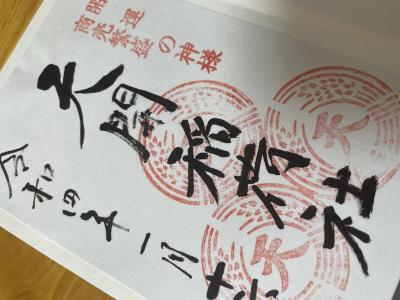 開運
商売繁盛の神様
天開稲荷社
令和四年一月十六
天
天